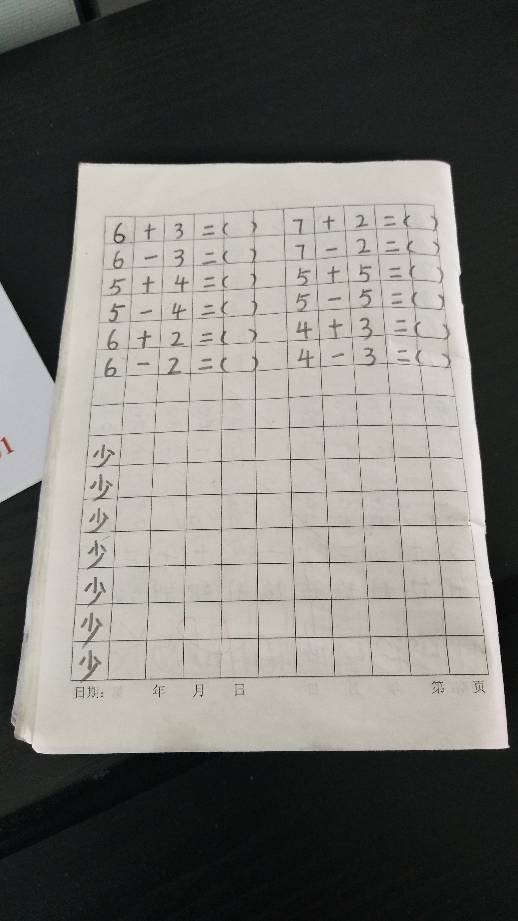 6 + 3 = ( ) 7 + 2 = ( )
6 - 3 = ( ) 7 - 2 = ( )
5 + 4 = ( ) 5 + 5 = ( )
5 - 4 = ( ) 5 - 5 = ( )
6 + 2 = ( ) 4 + 3 = ( )
6 - 2 = ( ) 4 - 3 = ( )
少
少
少
少
少
少
少
日期： 年 月 日 第 页